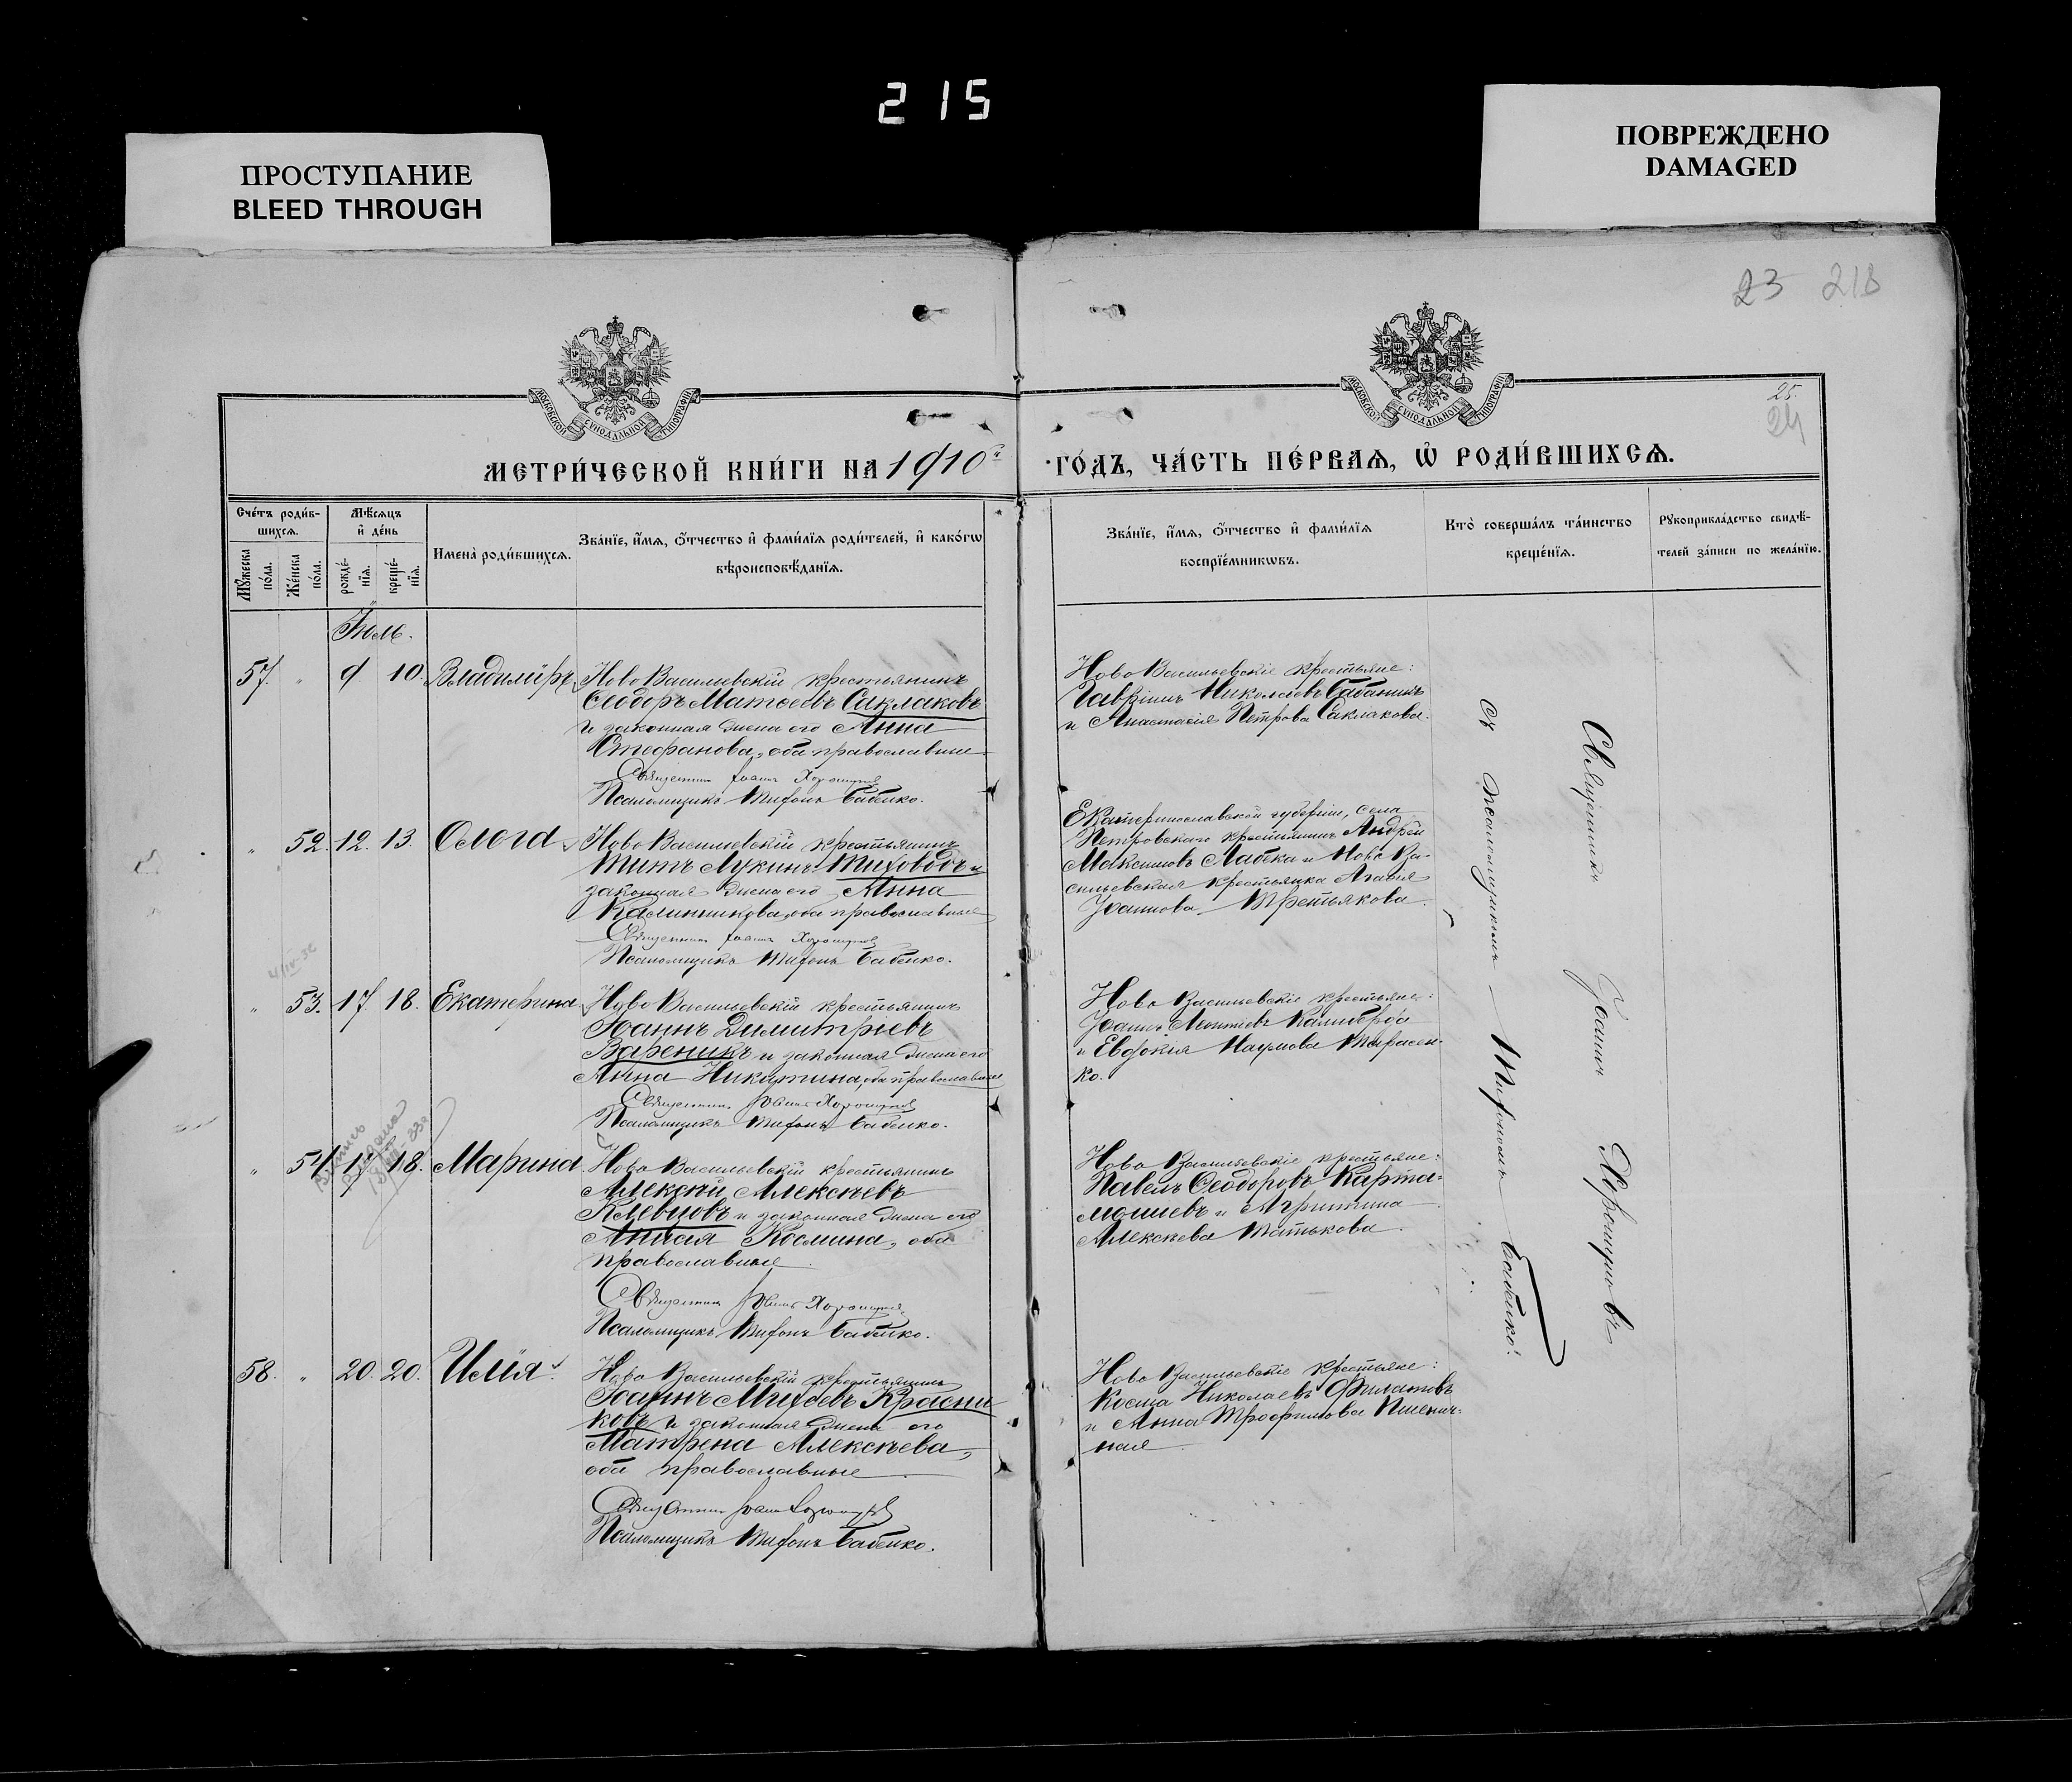 215
ПРОСТУПАНИЕ
BLEED THROUGH
ПОВРЕЖДЕНО
DAMAGED
23 218
25.
24
МОСКОВСКОЙ СѴНОДАЛЬНОЙ ТИПОГРАФІИ
МОСКОВСКОЙ СѴНОДАЛЬНОЙ ТИПОГРАФІИ
МЕТРИ́ЧЕСКОЙ КНИ́ГИ НА 1910й
ГО́ДЪ, ЧА́СТЬ ПЕ́РВАѦ, Ѽ РОДИ́ВШИХСѦ.
Сче́тъ роди́в-
шихсѧ.
Мꙋ́жеска по́ла.
Же́нска по́ла.
Мѣ́сѧцъ
и҆ де́нь
рожде́-
нїѧ.
креще́-
нїѧ.
Имена̀ роди́вшихсѧ.
Зва́нїе, и҆́мѧ, ѻ҆́тчество и҆ фами́лїѧ роди́телей, и҆ како́гѡ
вѣроисповѣ́данїѧ.
Зва́нїе, и҆́мѧ, ѻ҆́тчество и҆ фами́лїѧ
воспрїе́мникѡвъ.
Кто̀ соверша́лъ та́инство
креще́нїѧ.
Рꙋкоприкла́дство свидѣ́-
телей за́писи по жела́нїю.
Іюль.
57. " 9 10. Владимiръ
Ново Васильевскій крестьянинъ
Ѳеодоръ Матѳеевъ Саклаковъ
и законная жена его Анна
Стефанова, оба православные
Священникъ Іоаннъ Хорошуновъ
Псаломщикъ Тифонъ Бабенко.
Ново Васильевскіе крестьяне:
Гавріилъ Николаевъ Бабанинъ
и Анастасія Петрова Саклакова.
" 52. 12. 13. Ольга
Ново Васильевскій крестьянинъ
Титъ Лукинъ Тиховодъ и
законная жена его Анна
Калинникова, оба православные
Священникъ Іоаннъ Хорошуновъ
Псаломщикъ Тифонъ Бабенко.
Екатеринославской губерніи, села
Петровскаго крестьянинъ Андрей
Максимовъ Лабека и Ново Ва-
сильевская крестьянка Агафія
Іоаннова Третьякова.
" 53. 17. 18. Екатерина
Ново Васильевскій крестьянинъ
Іоаннъ Димитріевъ
Вареникъ и законная жена его
Анна Никитина, оба православные
Священникъ Іоаннъ Хорошуновъ
Псаломщикъ Тифонъ Бабенко.
Ново Васильевскіе крестьяне:
Іоаннъ Леонтіевъ Калиберда
и Евдокія Наумова Тарасен-
ко.
" 54. 17. 18. Марина
Ново Васильевскій крестьянинъ
Алексѣй Алексѣевъ
Клевцовъ и законная жена его
Аглая Космина, оба
православные.
Священникъ Іоаннъ Хорошуновъ
Псаломщикъ Тифонъ Бабенко.
Ново Васильевскіе крестьяне:
Павелъ Ѳеодоровъ Карта-
мошевъ и Агрипина
Алексѣева Татькова.
58. " 20. 20. Илія
Ново Васильевскій крестьянинъ
Іоаннъ Михѣевъ Красни-
ковъ и законная жена его
Матрена Алексѣева,
оба православные.
Священникъ Іоаннъ Хорошуновъ
Псаломщикъ Тифонъ Бабенко.
Ново Васильевскіе крестьяне:
Косма Николаевъ Филатовъ
и Анна Трофимова Пшенич-
ная.
Священникъ Іоаннъ Хорошуновъ
съ псаломщикомъ Тифономъ Бабенко.